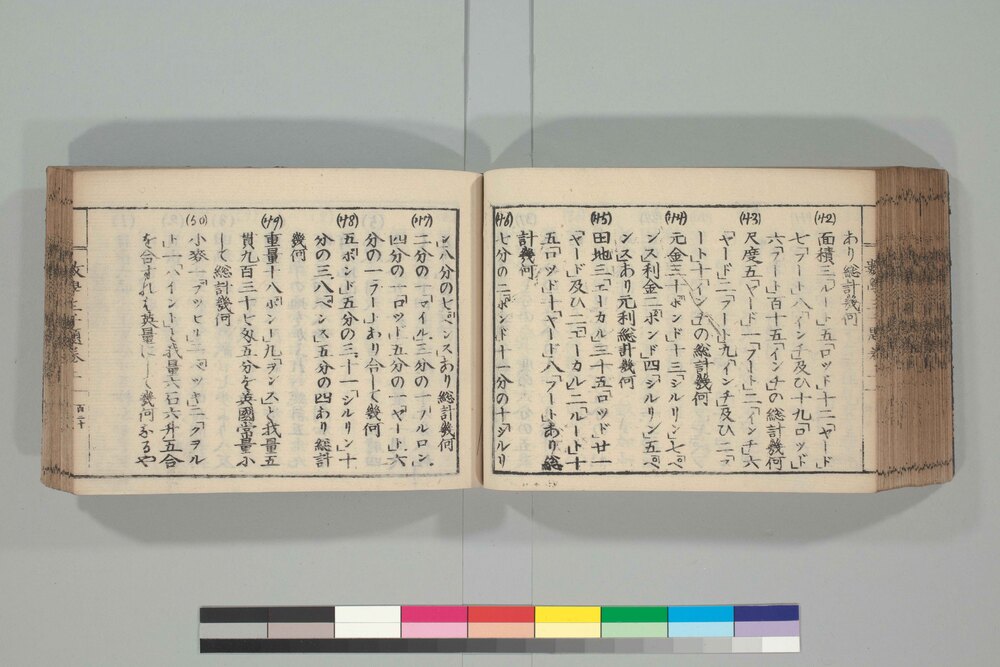 あり総計幾何
(42) 面積三「ルート」五「ロッド」十二「ヤード」
七「フート」八「インチ」及ひ十九「ロッド」
六「フート」百十五「インチ」の総計幾何
(43) 尺度五「ヤード」一「フート」二「インチ」六
「ヤード」二「フート」九「インチ」及ひ二「フ
ート」十「インチ」の総計幾何
(44) 元金三十「ポンド」十三「シルリン」七「ペ
ンス」利金二「ポンド」四「シルリン」五「ペ
ンス」あり元利総計幾何
(45) 田地三「エーカル」三十五「ロッド」廿一
「ヤード」及ひ二「エーカル」二「ルート」十
五「ロッド」十「ヤード」八「フート」あり総
計幾何
(46) 七分の二「ポンド」十一分の十「シルリ
ン」八分の七「ペンス」あり総計幾何
(47) 二分の一「マイル」三分の一「フルロン」
四分の一「ロッド」五分の一「ヤート」六
分の一「フート」あり合して幾何
(48) 五「ポンド」五分の三、十一「シルリン」十
分の三、八「ペンス」五分の四あり総計
幾何
(49) 重量十八「ポンド」九「ヲンス」と我量五
貫九百三十七匁五分を英國常量に
して総計幾何
(50) 小麥一「ブッセル」三「ペッキ」二「クヲル
ト」一「パイント」と我量六石六升五合
を合すれは英量にして幾何なるや
百二十